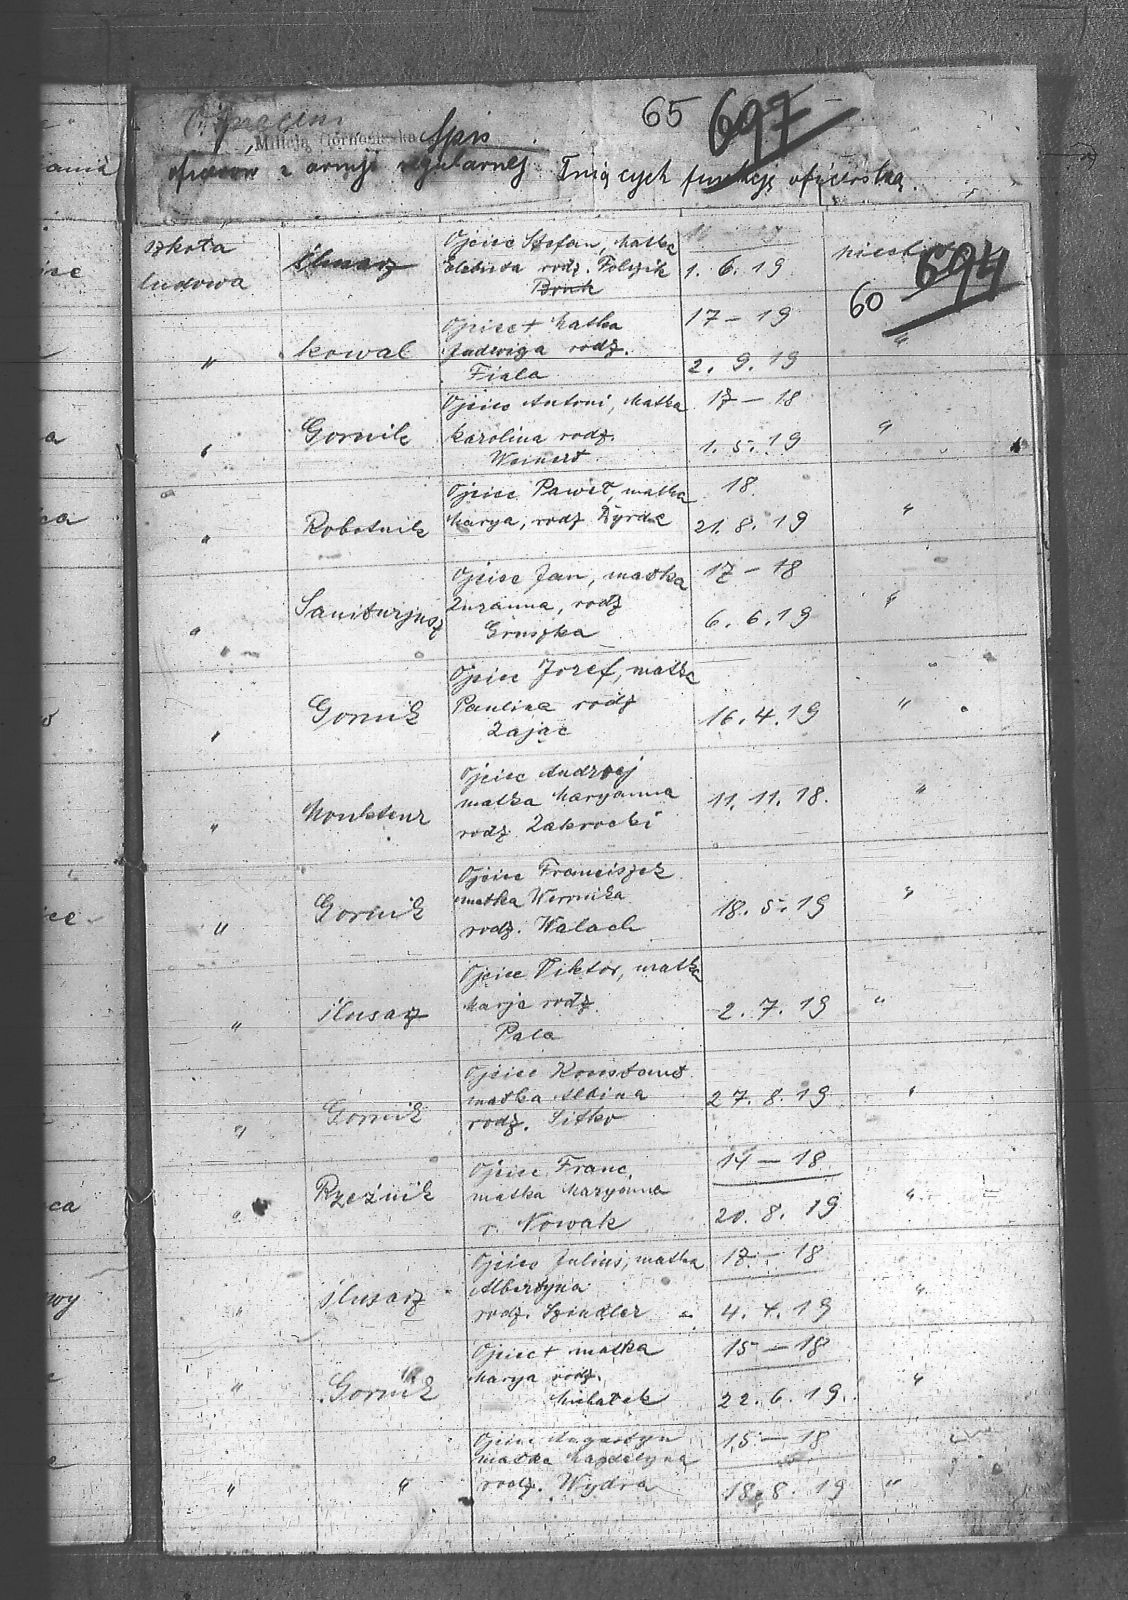 65 697
Milicja Górnośląska Spis
z armji regularnej funkcję oficerską.
szkoła
ludowa
ślusarz
Ojciec Stefan, Matka
Elżbieta rodz. Folczik
Bruk
1. 6. 19
694
60
"
kowal
Ojciec + Matka
Jadwiga rodz.
Fiala
17 – 19
2. 9. 19
"
"
Gornik
Ojciec Antoni, Matka
Karolina rodz.
Weinert
17 – 18
1. 5. 19
"
"
Robotnik
Ojciec Paweł, matka
Marya, rodz
18.
21. 8. 19
"
"
Sanitarjusz
Ojciec Jan, matka
Zuzanna, rodz
Gruszka
17 – 18
6. 6. 19
"
"
Gornik
Ojciec Jozef, matka
Paulina rodz
Zając
16. 4. 19
"
"
Monkteur
Ojciec Andrzej
matka Maryanna
rodz. Zakrocki
11. 11. 18.
"
"
Gornik
Ojciec Franciszek
matka Wernika
rodz. Walach
18. 5. 19
"
"
ślusarz
Ojciec Wiktor, matka
Marja rodz.
Pala
2. 7. 19
"
"
Gornik
Ojciec Konstant
matka Albina
rodz. Sitko
27. 8. 19
"
"
Rzeźnik
Ojciec Franc,
matka Maryanna
r. Nowak
14 – 18
20. 8. 19
"
"
ślusarz
Ojciec Julius, matka
Albertyna
rodz. Szindler
17 – 18
4. 4. 19
"
"
Gornik
Ojciec + matka
Marya rodz.
Michalek
15 – 18
22. 6. 19.
"
"
"
Ojciec Augustyn
matka Magdalyna
rodz. Wydra
15 – 18
18. 8. 19
"